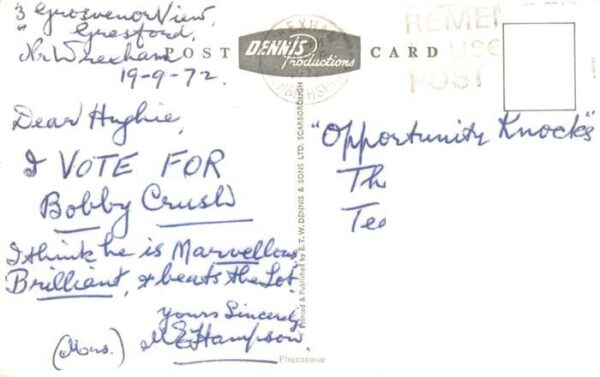 3 Grosvenor View,
" Gresford,
Nr Wrexham
19-9-72.
POST CARD
DENNIS
Productions
WREXHAM
DENBIGHSHIRE
REMEM
USE
POST
!
Dear Hughie,
I VOTE FOR
Bobby Crush
I think he is Marvellous,
Brilliant, & beats the Lot.
Yours Sincerely
(Mrs.) M E Hampson.
"Opportunity Knocks"
Th
Ted
Printed & Published by E.T.W. DENNIS & SONS LTD. SCARBOROUGH
Phototone